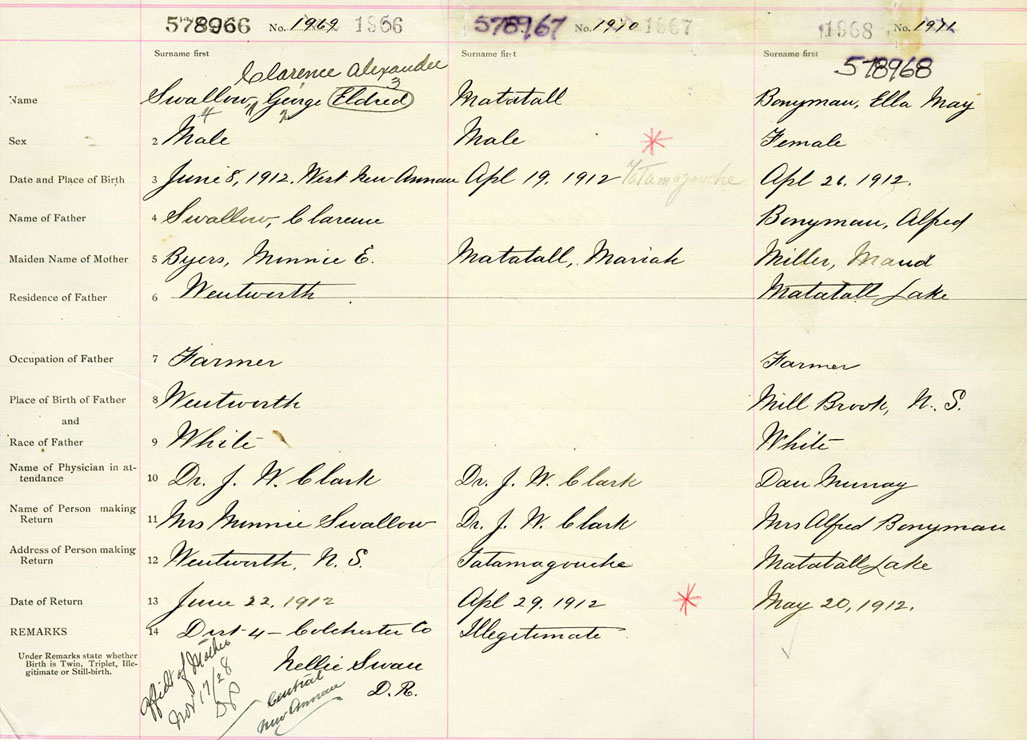 578966 No. 1969 1966 578967 No. 1970 1967 1968 No. 1971
Surname first Surname first Surname first 578968
Clarence Alexander
3
Name Swallow, George Eldred Matatall Bonyman, Ella May
4 1 2
Sex 2 Male Male Female
Date and Place of Birth 3 June 8, 1912. West New Annan Apl 19. 1912 Tatamagouche Apl 26. 1912.
Name of Father 4 Swallow, Clarence Bonyman, Alfred
Maiden Name of Mother 5 Byers, Minnie E. Matatall, Mariah Miller, Maud
Residence of Father 6 Wentworth Matatall Lake
Occupation of Father 7 Farmer Farmer
Place of Birth of Father 8 Wentworth Mill Brook, N. S.
and
Race of Father 9 White White
Name of Physician in at-
tendance 10 Dr. J. W. Clark Dr. J. W. Clark Dan Murray
Name of Person making
Return 11 Mrs Minnie Swallow Dr. J. W. Clark Mrs Alfred Bonyman
Address of Person making
Return 12 Wentworth, N. S. Tatamagouche Matatall Lake
Date of Return 13 June 22, 1912 Apl 29. 1912 May 20, 1912.
REMARKS 14 Dist 4 - Colchester Co Illegitimate
Under Remarks state whether
Birth is Twin, Triplet, Ille-
gitimate or Still-birth.
Nellie Swan
D. R.
Central
New Annan
Affidt of Mother
Nov 17/28